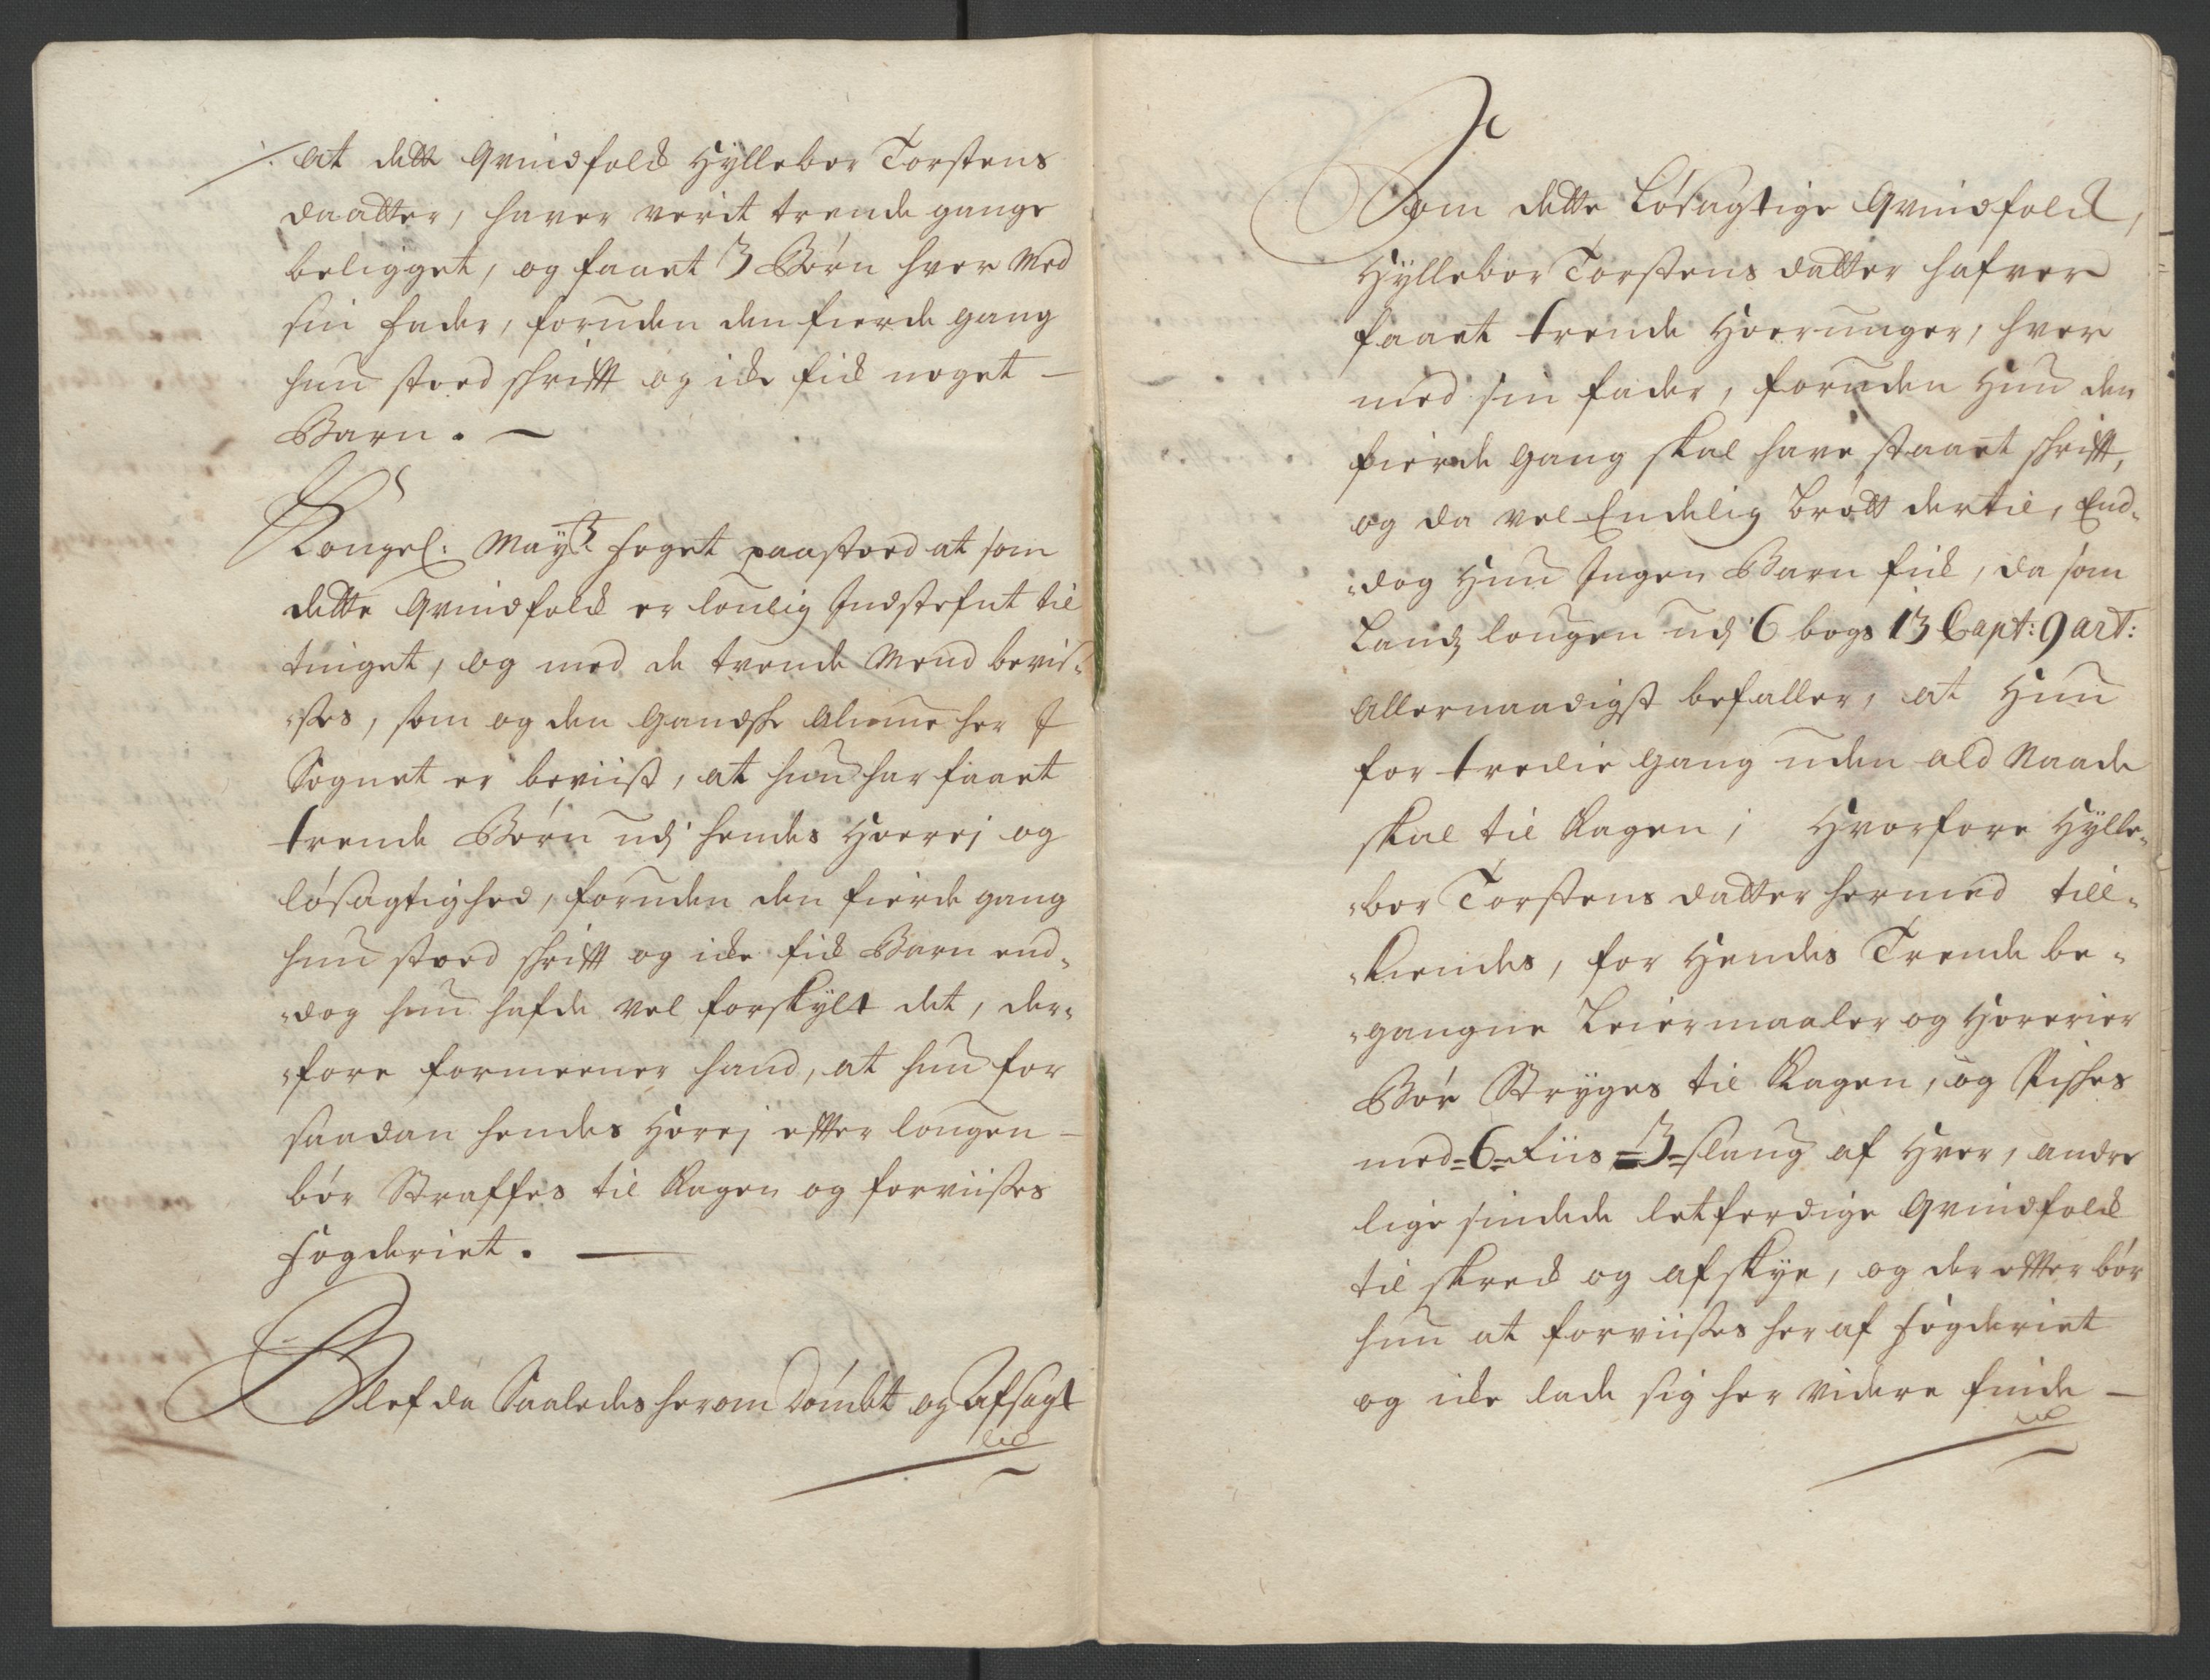 /. at dette Qvindfolck Hyllebor Torstens
daatter, haver verit trende gange
beligget, og faaet 3 Børn hver Med
sin Fader, foruden den fierde gang
hun stoed schrifft og icke fick noget -
Barn. -
Kongel: Mayts foget paastoed at som
dette Qvindfolck er loulig Indstefnt til
tinget, og med de trende Mend bevis-
-stes, som og den gandsche Almue her I
Sognet er beviist, at hun har faaet
trende Børn udj hendes Hoerej og
løsagtighed, foruden den fierde gang
hun stoed schrifft og icke fick Barn end-
-dog hun hafde vel forskylt det, der-
-fore formeener hand, at hun for
saadan hendes Horej effter lougen -
bør Straffes til Kagen og forviises
fogderiet. -
Blef da Saaledes herom Dømbt og Afsagt
Som dette Løsagtige Qvindfolck,
Hyllebor Torstens datter hafver
faaet trende Hoerunger, hver
med sin fader, foruden Hun den
fierde gang skal have staaet schrifft,
og da vel Endelig brøtt dertil, End-
-dog Hun Ingen Barn fick, da som
Landz lougen udj 6 bogs 13 Capt: 9 art:
Allernaadigst befaller, at Hun
for tredie gang uden ald Naade
skal til Kagen; Hvorfore Hylle-
-bor Torstens datter hermed till-
-kiendes, for Hendes Trende be-
-gangne Leiermaaler og Horerier
Bør Stryges til Kagen, og Pisches
med=6=Riis=3=slaug af Hver, andre
lige sindede letferdige Qvindfolck
til skreck og afskye, og der effter bør
hun at forviises her af fogderiet
og icke lade sig her videre finde -